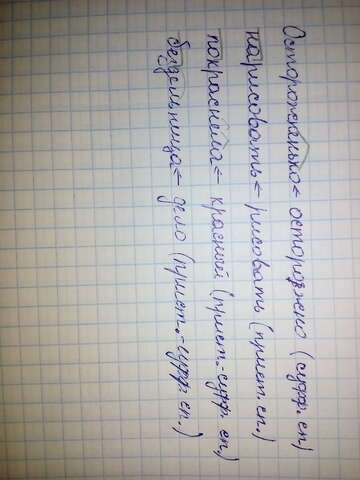 Осторожнанько ← осторожно (суфф. сп)
нарисовать ← рисовать (прист. сп.)
покраснели ← красный (прист.-суфф. сп.)
бездельница ← дело (прист.-суфф. сп.)